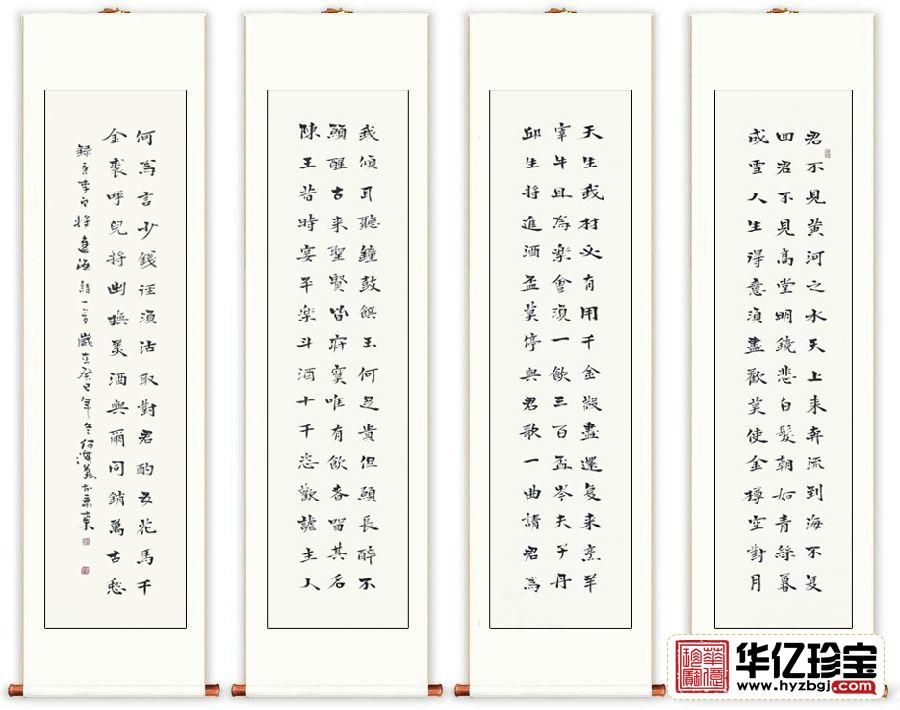 君不見黄河之水天上来奔流到海不复
回君不見高堂明鏡悲白髮朝如青絲暮
成雪人生得意須盡歡莫使金樽空對月
天生我材必有用千金散盡還复来烹羊
宰牛且為楽會須一飲三百盃岑夫子丹
邱生将進酒盃莫停與君歌一曲請君為
我傾耳聽鐘鼓饌玉何足貴但願長醉不
願醒古来聖賢皆寂寞唯有飲者留其名
陳王昔時宴平楽斗酒十千恣歡謔主人
何為言少錢徑須沽取對君酌五花馬千
金裘呼兒将出換美酒與爾同銷萬古愁
錄唐李白将進酒詩一首歲在癸巳年冬
华亿珍宝
www.hyzbgj.com